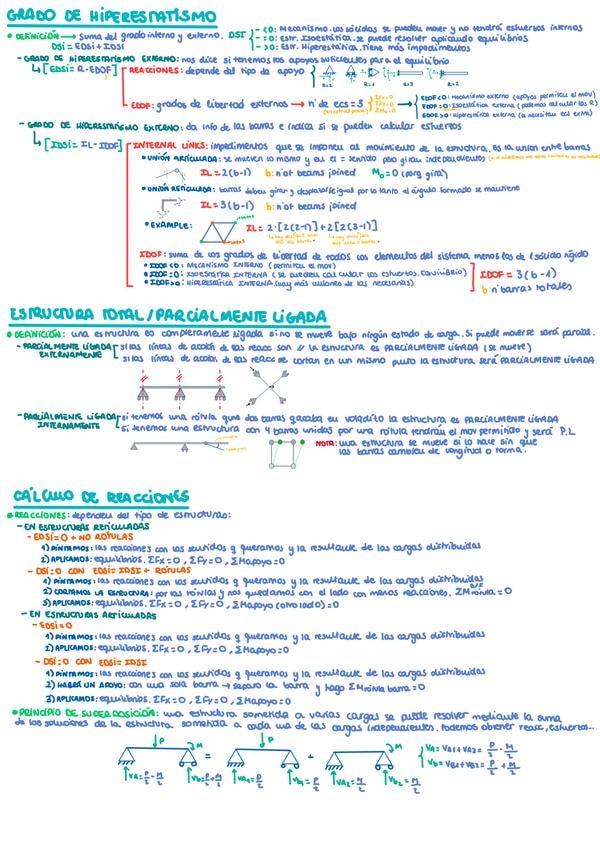 GRADO DE HIPERESTATISMO
• DEFINICIÓN → Suma del grado interno y externo. DSI
DSI = EDSI + IDSI
- < 0: Mecanismo. Los sólidos se pueden mover y no tendrá esfuerzos internos
- = 0: Estr. Isoestática. se puede resolver aplicando equilibrios
- > 0: Estr. Hiperestática. tiene más impedimentos
- GRADO DE HIPERESTATISMO EXTERNO: nos dice si tenemos los apoyos suficientes para el equilibrio
↳ [EDSI = R - EDOF]
REACCIONES: depende del tipo de apoyo
EDOF: grados de libertad externos → nº de ecs = 3
EDOF < 0: Mecanismo externo (apoyos permiten el mov)
EDOF = 0: Isoestática externa (podemos calcular las R)
EDOF > 0: Hiperestática externa (a necesitar ecs extra)
- GRADO DE HIPERESTATISMO EXTERNO: da info de las barras e indica si se pueden calcular esfuerzos
↳ [IDSI = IL - IDOF]
INTERNAL LINKS: impedimentos que se imponen al movimiento de la estructura. es la unión entre barras
• UNIÓN ARTICULADA: se mueven lo mismo y en el = sentido pero giran independientes
IL = 2(b-1) b: nº of beams joined M₀ = 0 (porq gira)
• UNIÓN RETICULADA: barras deben girar y desplazarse igual por lo tanto el ángulo formado se mantiene
IL = 3(b-1) b: nº of beams joined
• EXAMPLE: IL = 2·[2(2-1)] + 2[2(3-1)]
IDOF: suma de los grados de libertad de todos los elementos del sistema menos los de 1 sólido rígido
• IDOF < 0: MECANISMO INTERNO (permiten el mov)
• IDOF = 0: ISOESTÁTICA INTERNA (se pueden calcular los esfuerzos. Equilibrio)
• IDOF > 0: HIPERESTÁTICA INTERNA (hay más uniones de las necesarias)
IDOF = 3(b-1)
b: nº barras totales
ESTRUCTURA TOTAL/PARCIALMENTE LIGADA
• DEFINICIÓN: una estructura es completamente ligada si no se mueve bajo ningún estado de carga. Si puede moverse será parcial.
- PARCIALMENTE LIGADA EXTERNAMENTE
si las líneas de acción de las reacc son // la estructura es PARCIALMENTE LIGADA (se mueve)
si las líneas de acción de las reacc se cortan en un mismo punto la estructura será PARCIALMENTE LIGADA
- PARCIALMENTE LIGADA INTERNAMENTE
si tenemos una rótula que una dos barras q acaba en voladizo la estructura es PARCIALMENTE LIGADA
si tenemos una estructura con 4 barras unidas por una rótula tendrán el mov permitido y será P.L
NOTA: una estructura se mueve si lo hace sin que
las barras cambien de longitud o forma.
CÁLCULO DE REACCIONES
• REACCIONES: dependen del tipo de estructuras:
- EN ESTRUCTURAS RETICULADAS
- EDSI = 0 + NO RÓTULAS
1) PINTAMOS: las reacciones con los sentidos q queramos y la resultante de las cargas distribuidas
2) APLICAMOS: equilibrios. ΣFx = 0, ΣFy = 0, ΣMapoyo = 0
- DSI = 0 CON EDSI = IDSI + RÓTULAS
1) PINTAMOS: las reacciones con los sentidos q queramos y la resultante de las cargas distribuidas
2) CORTAMOS LA ESTRUCTURA: por las rótulas y nos quedamos con el lado con menos reacciones. ΣM rótula = 0
3) APLICAMOS: equilibrios. ΣFx = 0, ΣFy = 0, ΣMapoyo (otro lado) = 0
- EN ESTRUCTURAS ARTICULADAS
- EDSI = 0
1) PINTAMOS: las reacciones con los sentidos q queramos y la resultante de las cargas distribuidas
2) APLICAMOS: equilibrios. ΣFx = 0, ΣFy = 0, ΣMapoyo = 0
- DSI = 0 CON EDSI = IDSI
1) PINTAMOS: las reacciones con los sentidos q queramos y la resultante de las cargas distribuidas
2) HABRÁ UN APOYO: con una sola barra → separo la barra y hago ΣM rótula barra = 0
3) APLICAMOS: equilibrios. ΣFx = 0, ΣFy = 0, ΣMapoyo = 0
• PRINCIPIO DE SUPERPOSICIÓN: una estructura sometida a varias cargas se puede resolver mediante la suma
de las soluciones de la estructura sometida a cada una de las cargas independientes. Podemos obtener reacc, esfuerzos...
P M = P + M
VA = P/2 - M/2 VB = P/2 + M/2 VA1 = P/2 VB1 = P/2 VA2 = M/2 VB2 = M/2
VA = VA1 + VA2 = P/2 - M/2
VB = VB1 + VB2 = P/2 + M/2